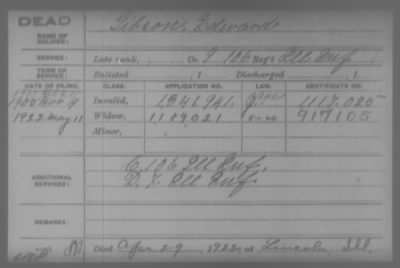 DEAD
NAME OF SOLDIER: Gibson, Edward
SERVICE: Late rank, Co. I, 106 Reg't Ill Inf
TERM OF SERVICE: Enlisted , 1 Discharged , 1
DATE OF FILING. CLASS. APPLICATION NO. LAW. CERTIFICATE NO.
1900 Nov 9 Invalid, 1341941 1117.025
1922 May 11 Widow, 1189021 917105
Minor,
ADDITIONAL SERVICES: C. 106 Ill Inf.
D. Ill Inf.
REMARKS:
Died Apr 29, 1922, at Lincoln, Ill,